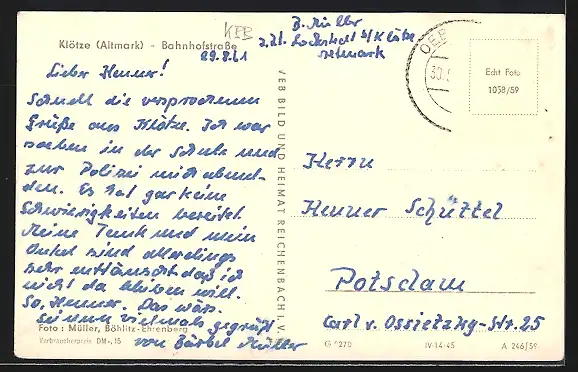 KEB
Klötze (Altmark) - Bahnhofstraße
29.8.61
B. Müller
z.Zt. Lockstedt b/Klötze
Altmark
OEB
30.
Echt Foto
1058/59
Lieber Henner!
Schnell die versprochenen
Grüße aus Klötze. Ich war
soeben in der Schule und
zur Polizei mich abmel-
den. Es hat gar keine
Schwierigkeiten bereitet.
Meine Tante und mein
Onkel sind allerdings
sehr enttäuscht daß ich
nicht da bleiben will.
So, Henner. Das wärs.
Sei nun vielmals gegrüßt
von Bärbel Müller
Foto: Müller, Böhlitz-Ehrenberg
Verbraucherpreis DM -,15
VEB BILD UND HEIMAT REICHENBACH i. V.
Herrn
Henner Schüttel
Potsdam
Carl v. Ossietzky-Str. 25
G 270
IV-14-45
A 246/59